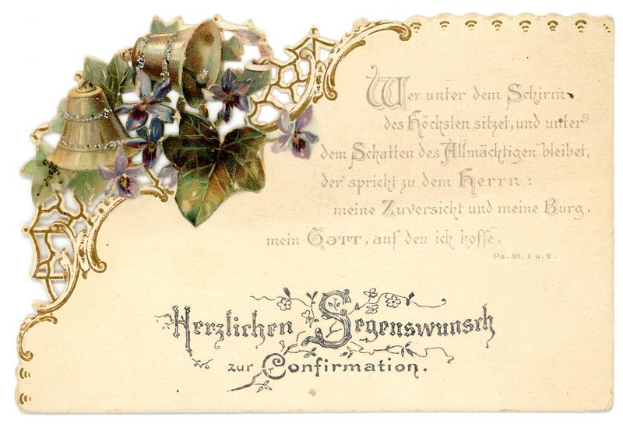 Wer unter dem Schirm
des Höchsten sitzet, und unter
dem Schatten des Allmächtigen bleibet,
der spricht zu dem Herrn:
meine Zuversicht und meine Burg,
mein GOTT, auf den ich hoffe.
Ps. 91. 1 u. 2.
Herzlichen Segenswunsch
zur Confirmation.